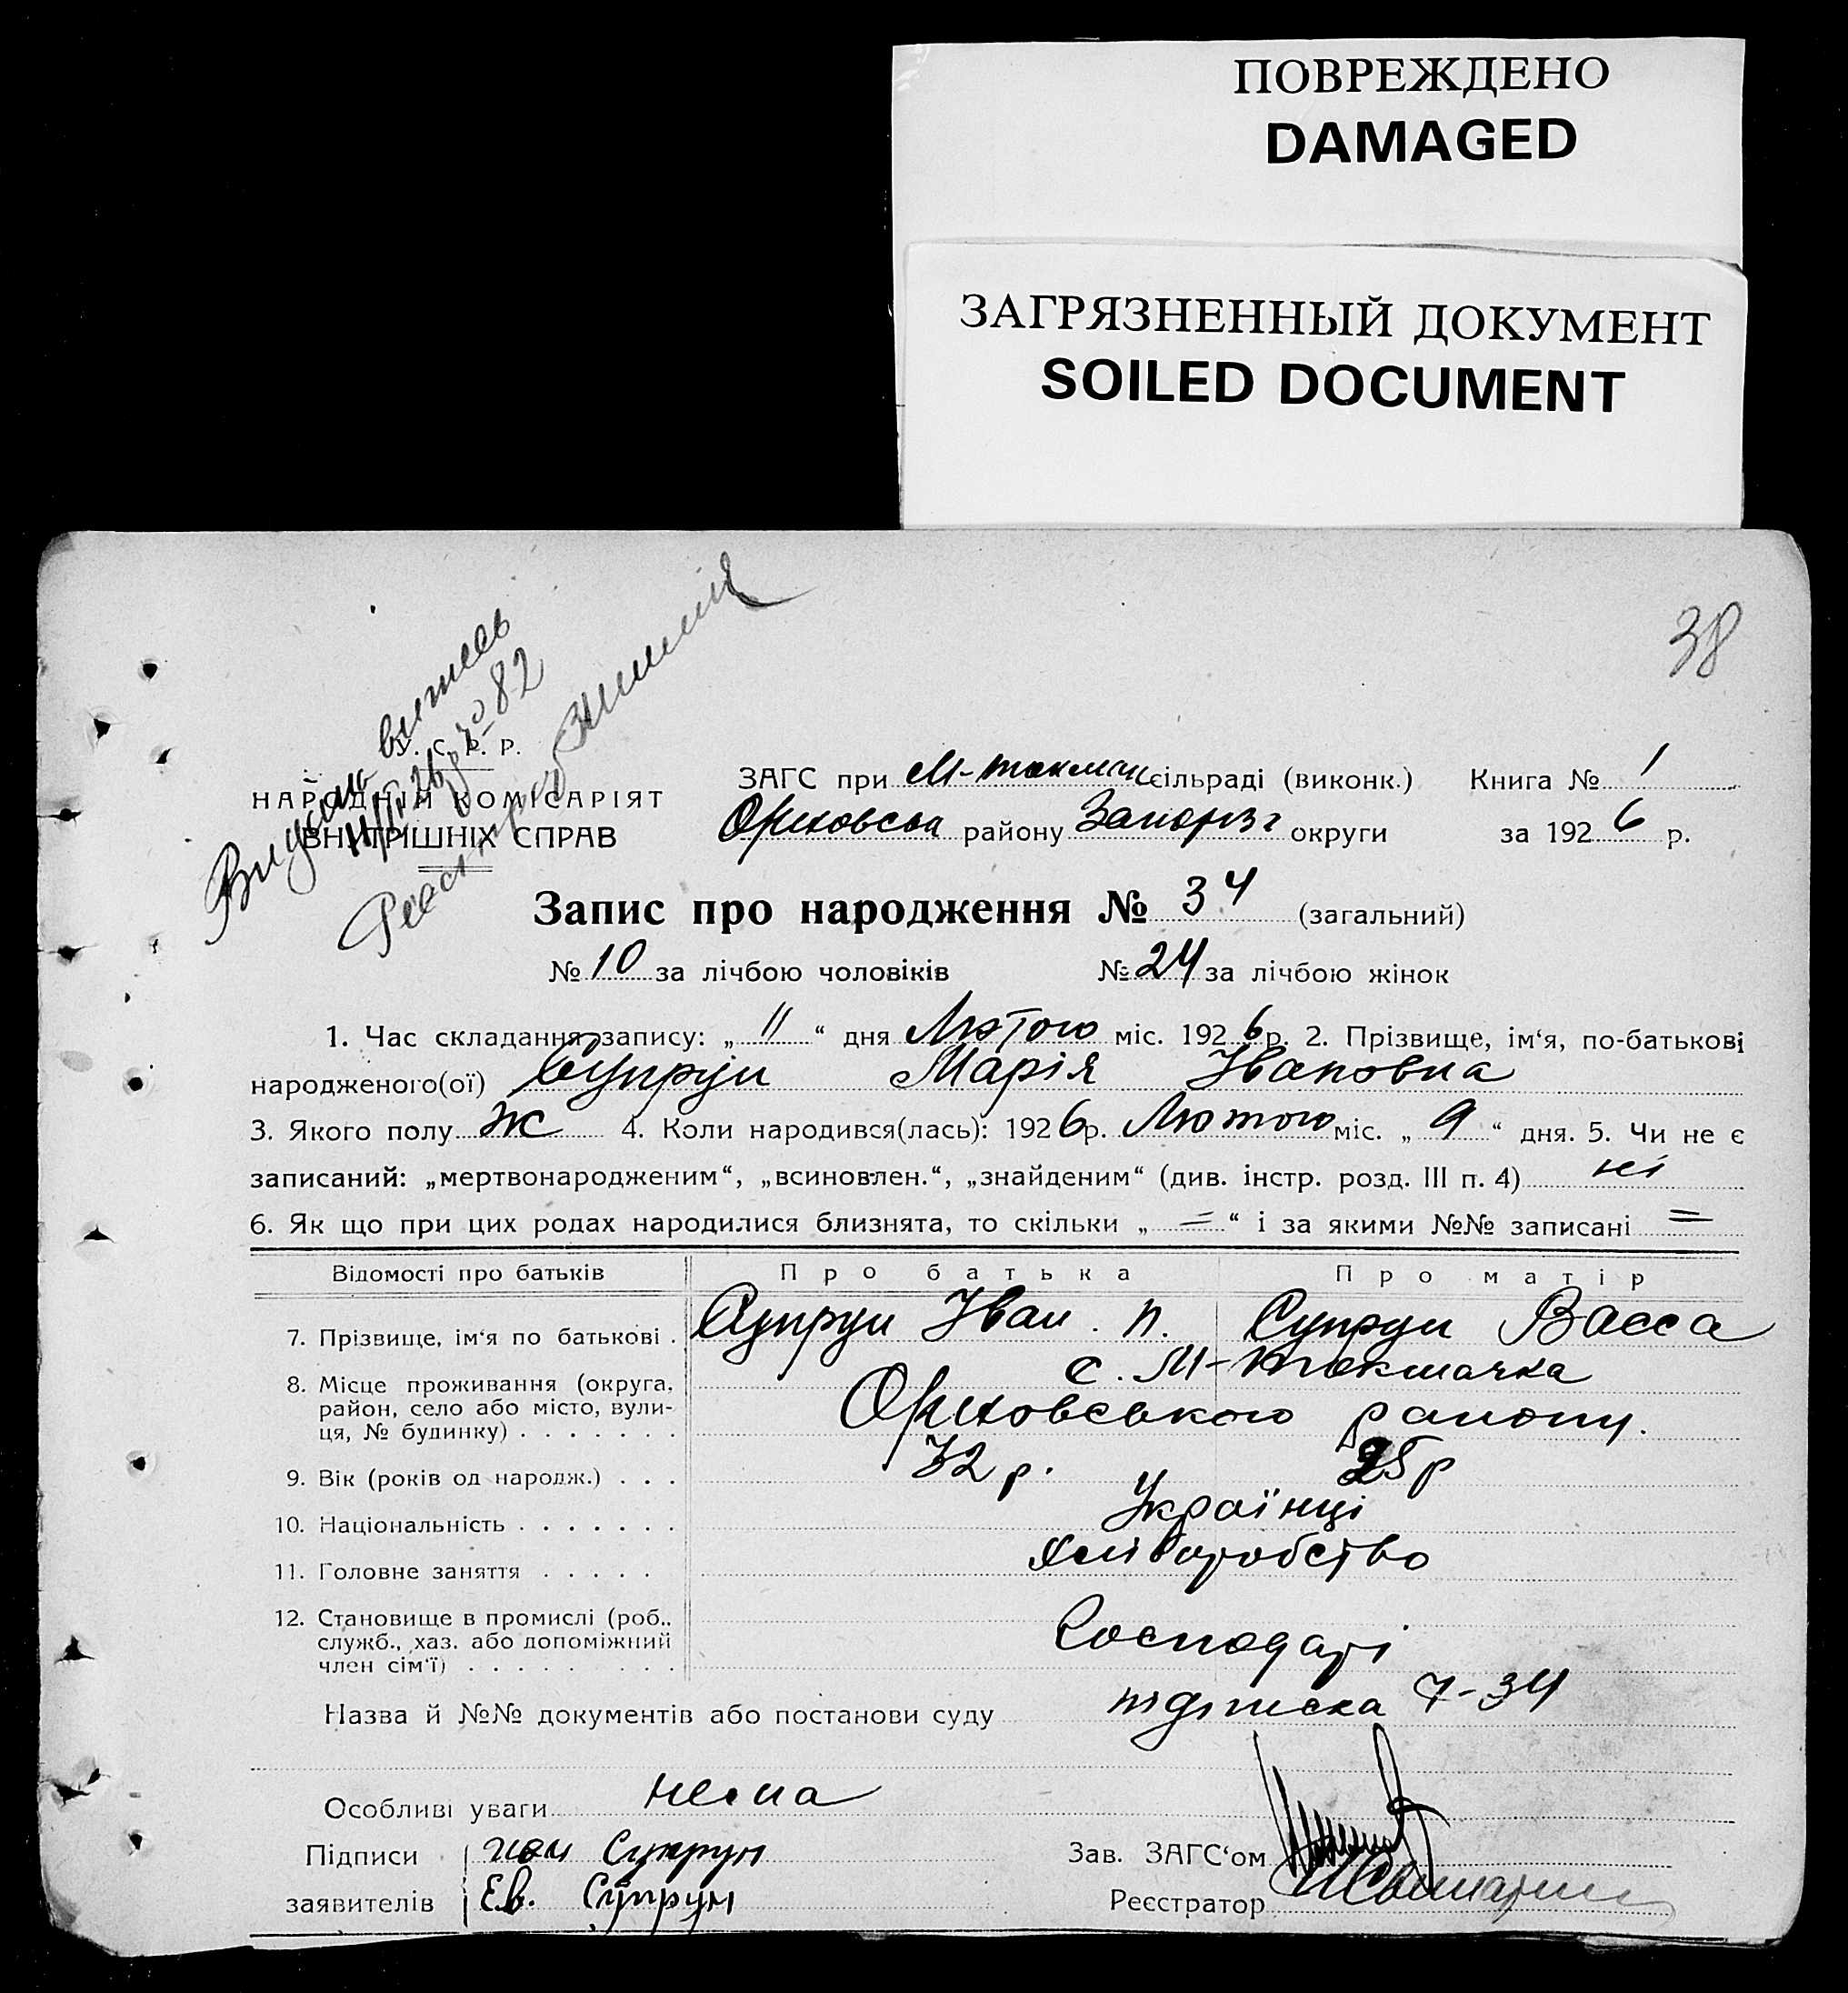 ПОВРЕЖДЕНО
DAMAGED
ЗАГРЯЗНЕННЫЙ ДОКУМЕНТ
SOILED DOCUMENT
38
82
У. С. Р. Р.
НАРОДНІЙ КОМІСАРІЯТ
ВНУТРІШНІХ СПРАВ
ЗАГС при М-токмач сільраді (виконк.) Книга № 1
Оріховськ району Запоріз округи за 1926 р.
Запис про народження № 34 (загальний)
№ 10 за лічбою чоловіків № 24 за лічбою жінок
1. Час складання запису: „ 11 “ дня Лютого міс. 1926 р. 2. Прізвище, ім‘я, по-батькові
народженого(ої) Супрун Марія Івановна
3. Якого полу Ж 4. Коли народився(лась): 1926 р. Лютого міс. „ 9 “ дня. 5. Чи не є
записаний: „мертвонародженим“, „всиновлен.“, „знайденим“ (див. інстр. розд. III п. 4) ні
6. Як що при цих родах народилися близнята, то скільки „ = “ і за якими №№ записані =
Відомості про батьків Про батька Про матір
7. Прізвище, ім‘я по батькові . Супрун Іван . П. Супрун Васса
8. Місце проживання (округа, район, село або місто, вулиця, № будинку) . . . . . . . с. М-Токмачка
Оріховського району.
9. Вік (років од народж.) . . . 32 р. 25 р
10. Національність . . . . . . . Українці
11. Головне заняття . . . . . Хліборобство
12. Становище в промислі (роб., служб., хаз. або допоміжний член сім‘ї) . . . . . . . . . Господарі
Назва й №№ документів або постанови суду підписка 7-34
Особливі уваги нема
Підписи Іван Супрун Зав. ЗАГС‘ом
заявителів Ев. Супрун Реєстратор